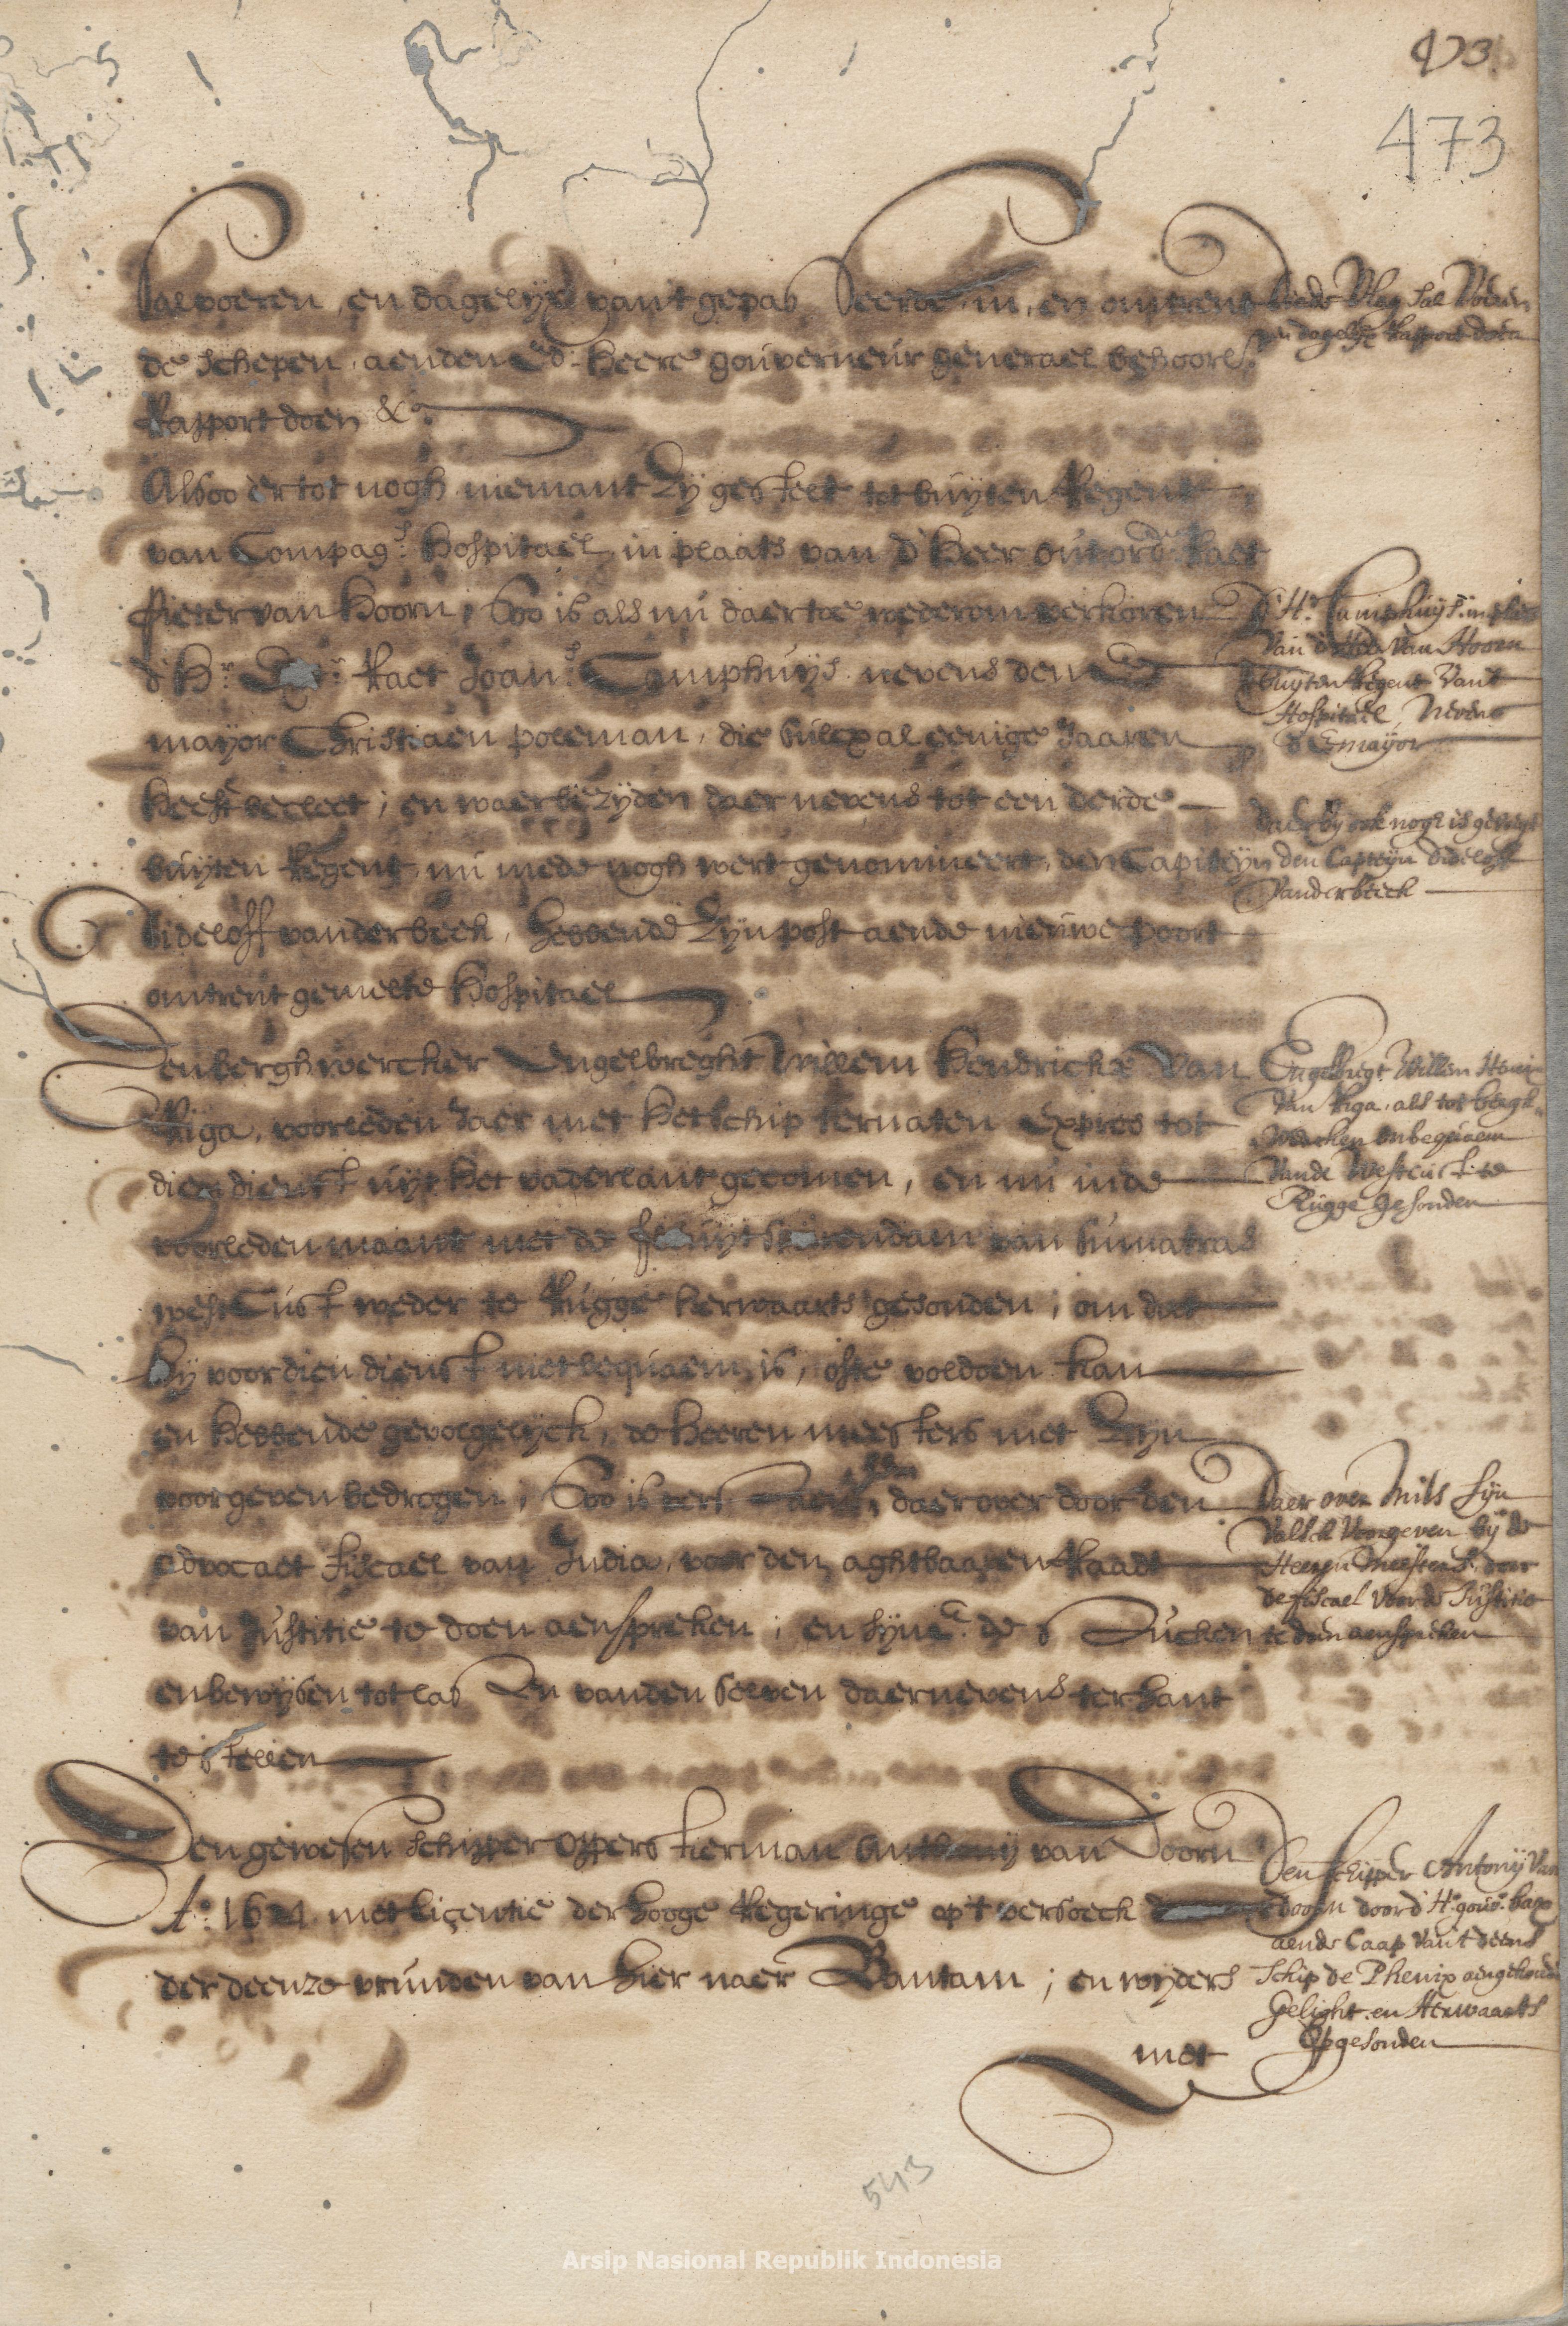 473
473
Sal voeren, en dagelyx van 't gepasseerde, in, en omtrent
de schepen, aenden Ed. Heere gouverneur generael behoorl.
Rapport doen &a.
Alsoo der tot nogh niemant zy gestelt tot buyten Regent
van Compags. Hospitael, in plaats van d' Heer outord. Raet
Pieter van Hoorn, Soo is als nu daertoe wederom verkoren
d' Hr. Raet Joans. Camphuys nevens den E
mayor Christiaen Poleman, die sulcx al eenige Jaaren
heeft becleet; en waer bezyden daer nevens tot een derde
buyten Regent, nu mede nogh wert genomineert, den Capiteyn
Dideloff vander beeck, hebbende zyn post aende nieuwe poort
omtrent gemelte Hospitael
Den berghwercker Engelbreght Willem Hendrickx van
Riga, voorleden Jaer met het schip Ternaten Expres tot
dien dienst uyt het vaderlant gecomen, en nu inde
voorleden maant met de fluyt van Sumatras
west Cust weder te Rugge herwaarts gesonden, om dat
hy voor dien dienst niet bequaem is, ofte voldoen kan
en hebbende gevolgelyck, de Heeren meesters met zyn
voorgeven bedrogen, Soo is daer over door den
advocaet fiscael van India, voor den aghtbaaren Raadt
van Justitie te doen aenspreken; en syne. de stucken
en bewysen tot lasten vanden selven daernevens ter hant
te stellen
Den gewesen schipper opperstierman Anthony van Doorn
Ao. 1671 met licentie der hooge Regeringe op 't versoeck
der deenze vrunden van hier naer Bantam; en wyders
met
Vlag sal Voeren
en dagelyx Rapport doen
D' Hr. Camphuys in plts.
Van d' Heer Van Hoorn
buyten Regent Vant
Hospitael, Nevens
d' E mayor
daer by ook nogh is gevoegt
den Capteyn Dideloff
Vanderbeeck
Engelbregt Willem Henr.
Van Riga, als tot bergh
wercken onbequaem
Vande Westcust te
Rugge gesonden
Daer over Mits syn
Valsch Voorgeven by de
Heeren Meesters, door
de fiscael Voor de Justitie
te doen aenspreken
Den schipper Antony Van
doorn door d' Hr. gouvr. bax
aende Caap Van 't deens
Schip de Phenix aengehoud.
Gelight en Herwaarts
Opgesonden
543
Arsip Nasional Republik Indonesia